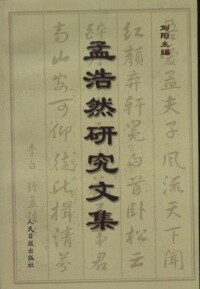 刘阳主编
孟浩然研究文集
爱孟夫子风流天下闻
红颜弃轩冕白首卧松云
君
高山安可仰徒此揖清芬
人民日报出版社